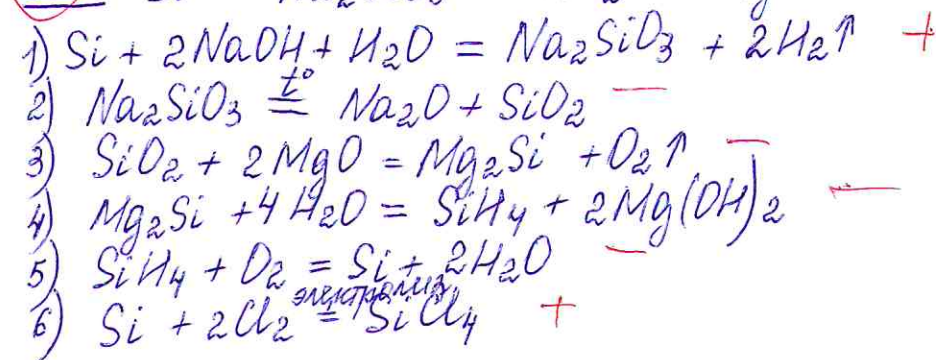 1) Si + 2NaOH + H2O = Na2SiO3 + 2H2↑ +
2) Na2SiO3 t°= Na2O + SiO2 —
3) SiO2 + 2MgO = Mg2Si + O2↑ —
4) Mg2Si + 4H2O = SiH4 + 2Mg(OH)2 —
5) SiH4 + O2 = Si + 2H2O —
электролиз
6) Si + 2Cl2 = SiCl4 +